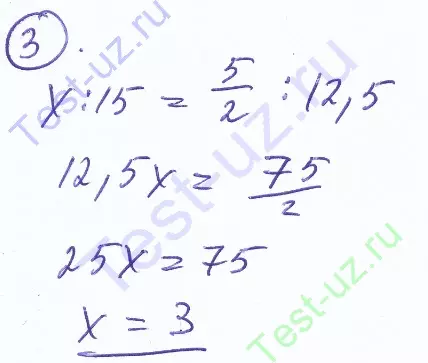 3.
x:15 = 5/2 : 12,5
12,5x = 75/2
25x = 75
x = 3
Test-uz.ru
Test-uz.ru
Test-uz.ru